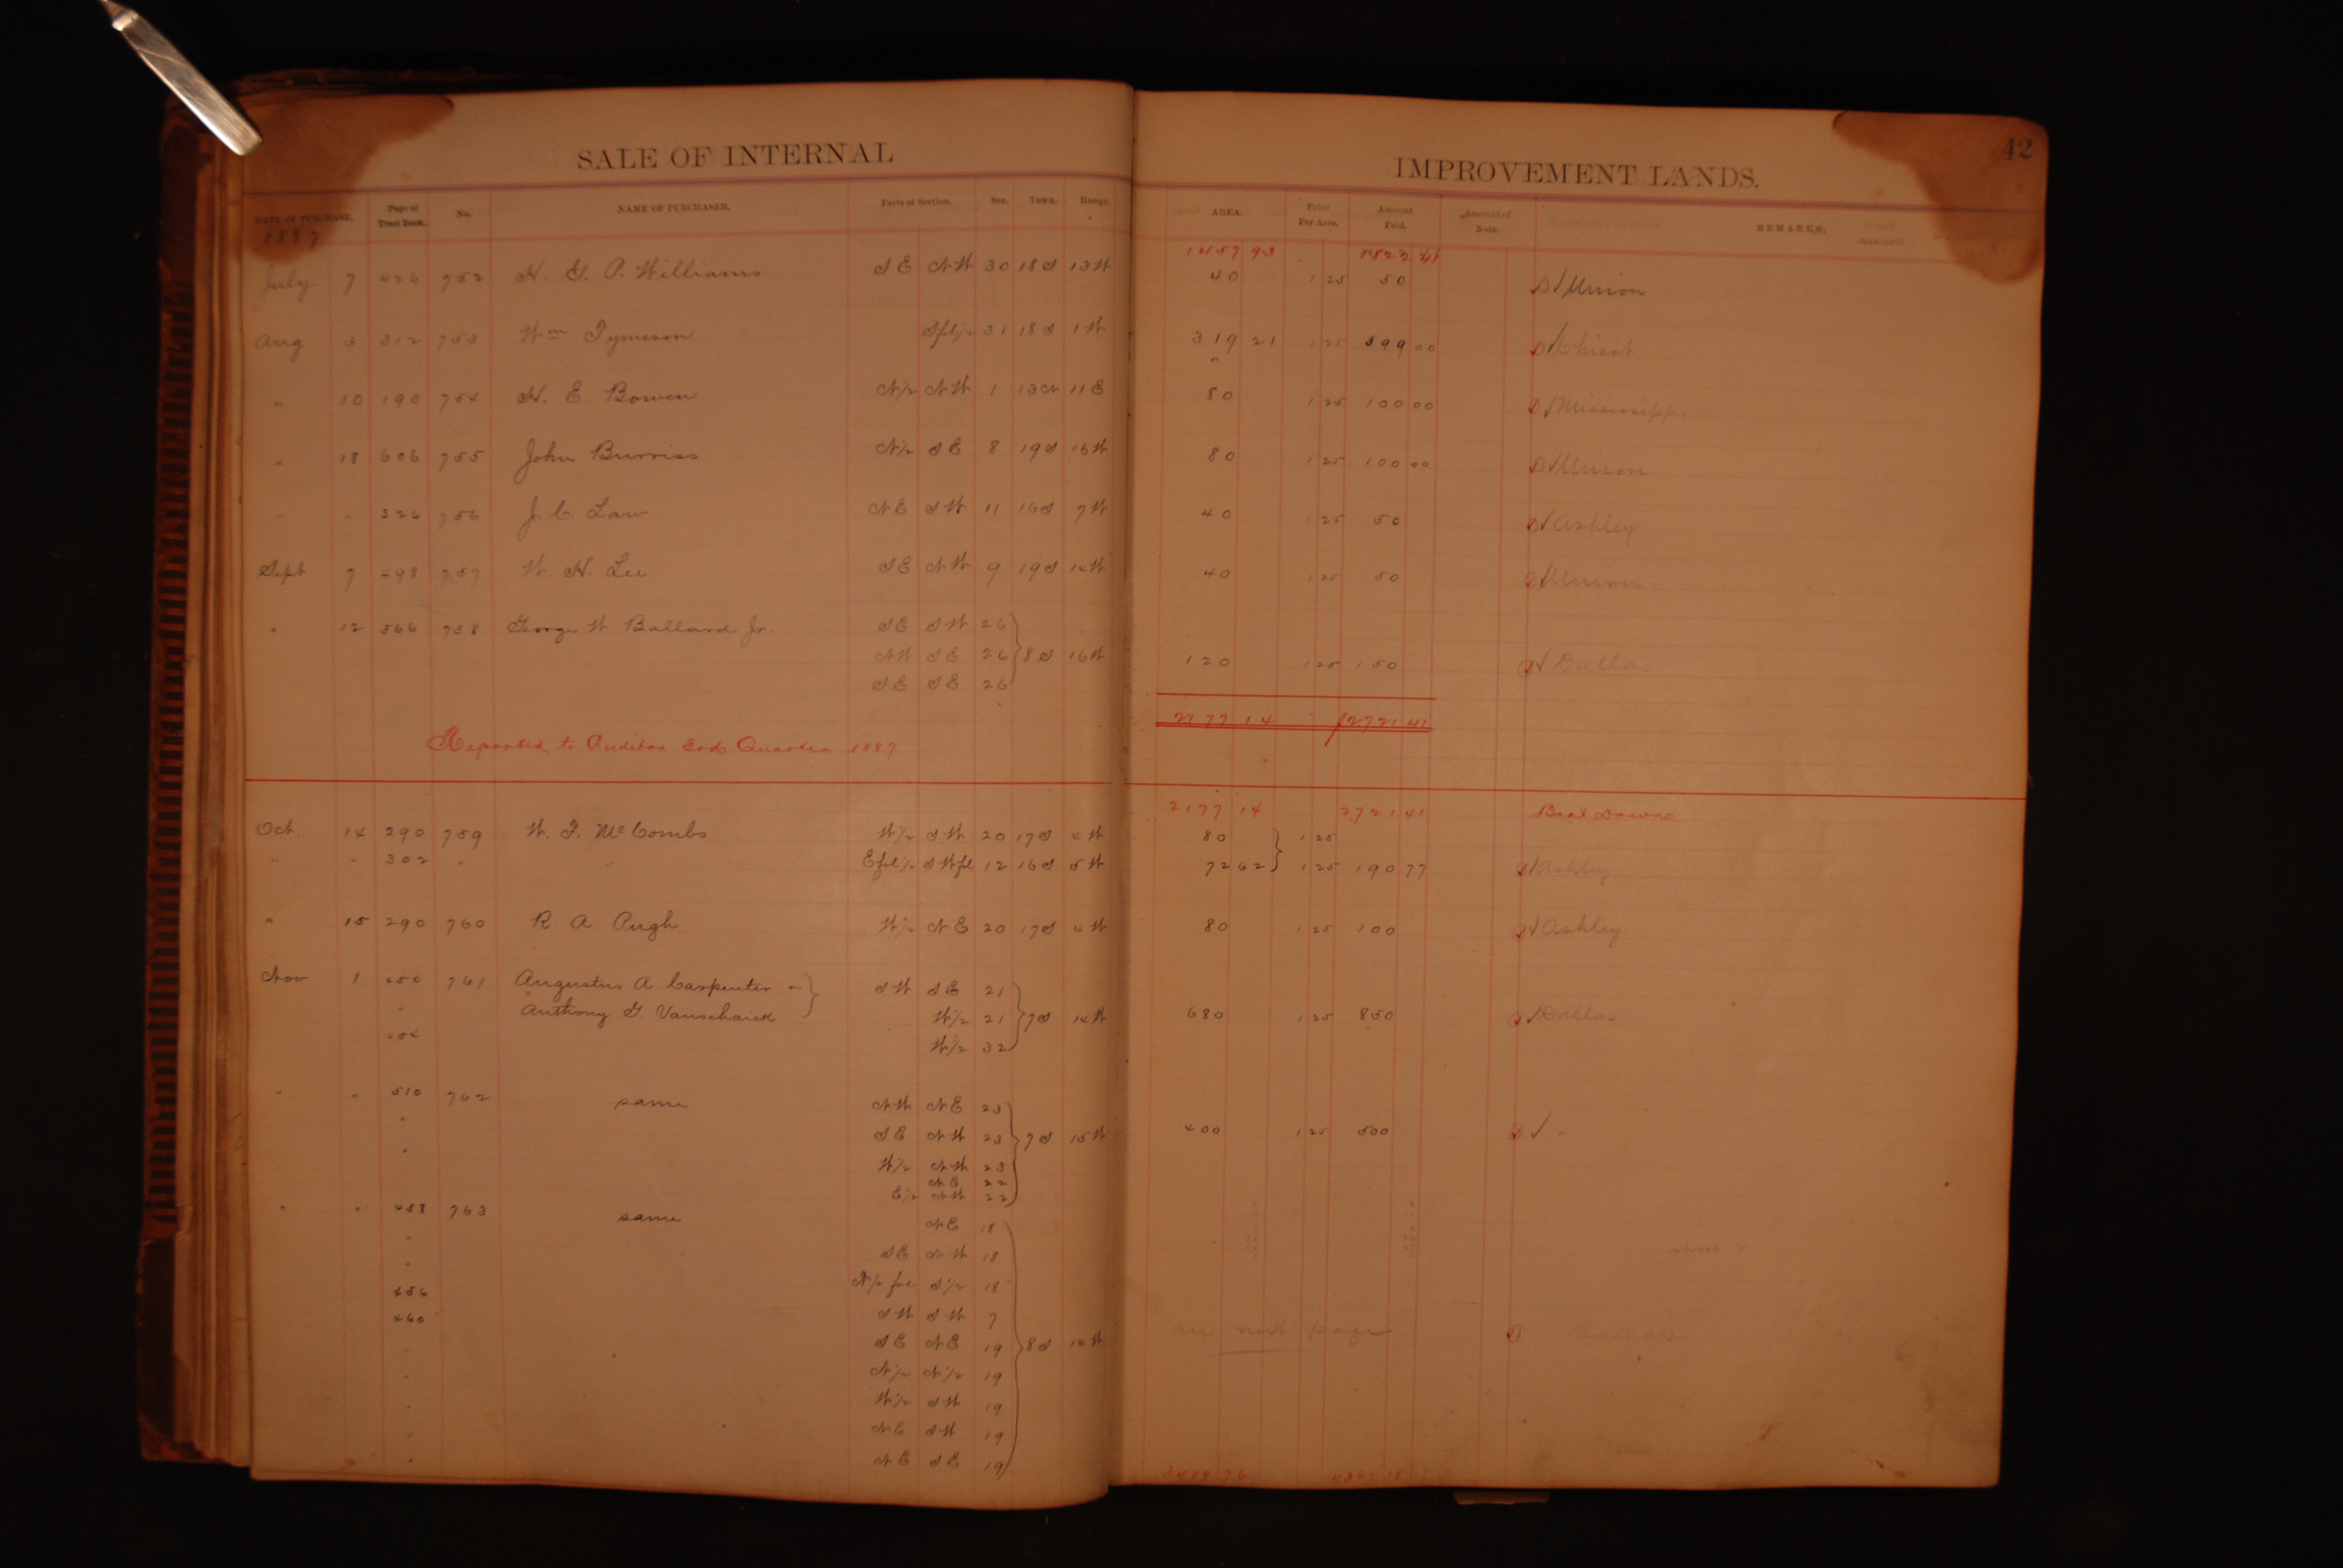 SALE OF INTERNAL IMPROVEMENT LANDS. 42
DATE OF PURCHASE. Page of Tract Book. No. NAME OF PURCHASER. Parts of Section. Sec. Town. Range. AREA. Price Per Acre. Amount Paid. Amount of Note. REMARKS.
1887
1457 93 1822 41
July 7 426 752 H. G. P. Williams SE NW 30 18S 13W 40 1 25 50 Union
Aug 3 312 753 Wm Tymeson Sfl½ 31 18S 1W 319 21 1 25 399 00 Chicot
" 10 190 754 H. E. Bowen N½ NW 1 13N 11E 80 1 25 100 00 Mississippi
" 18 606 755 John Burriss N½ SE 8 19S 16W 80 1 25 100 00 Union
" " 326 756 J. C. Law NE SW 11 16S 7W 40 1 25 50 Ashley
Sept 7 498 757 W. H. Lee SE NW 9 19S 14W 40 1 25 50 Union
" 12 566 758 George W. Ballard Jr. SE SW 26
NW SE 26 8S 16W 120 1 25 150 Dallas
SE SE 26
2177 14 2721 41
Reported to Auditor 3rd Quarter 1887
2177 14 2721 41 Brot Down
Oct. 14 290 759 W. F. McCombs W½ SW 20 17S 4W 80 1 25
" " 302 " " Efrl½ SWfl 12 16S 5W 72 62 1 25 190 77 Ashley
" 15 290 760 R. A. Pugh W½ NE 20 17S 4W 80 1 25 100 Ashley
Nov 1 450 761 Augustus A. Carpenter SW SE 21
" Anthony G Vanschaick W½ 21 7S 14W 680 1 25 850 Dallas
454 W½ 32
" " 510 762 same NW NE 23
" SE NW 23 7S 15W 400 1 25 500 "
" W½ NW 23
NE 22
E½ NW 22
" " 458 763 same NE 18
" SE NW 18
" N½ frl S½ 18
456 SW SW 7
460 SE NE 19 8S 14W see next page Dallas
" N½ N½ 19
" W½ SW 19
" NE SW 19
" NE SE 19